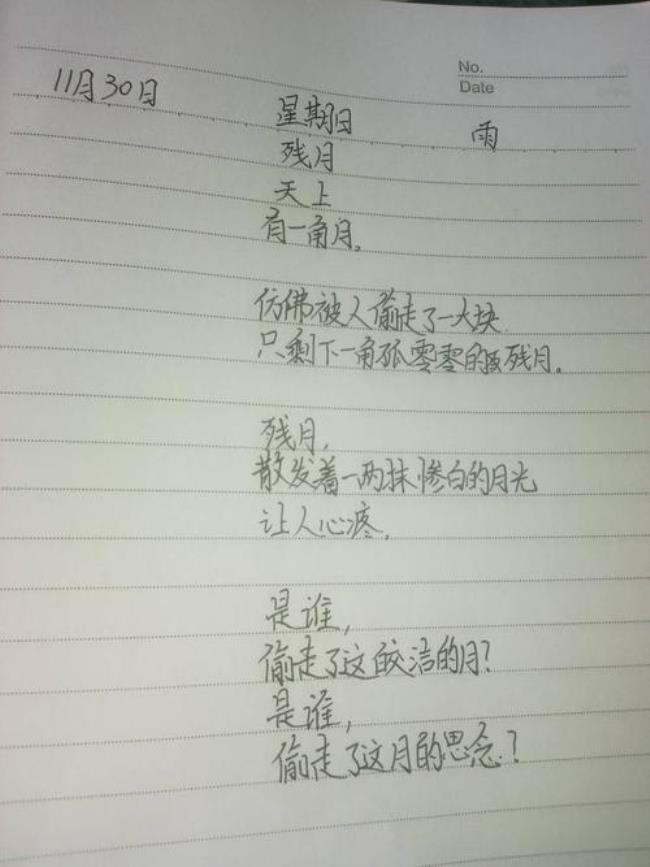 No.
Date
11月30日 星期日 雨
残月
天上
有一角月。
仿佛被人偷走了一大块
只剩下一角孤零零的残月。
残月,
散发着一两抹惨白的月光
让人心疼,
是谁,
偷走了这皎洁的月?
是谁,
偷走了这月的思念?